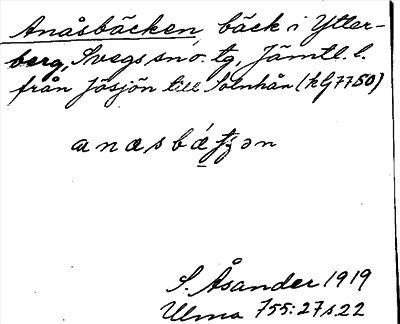 Anåsbäcken, bäck i Ytter-
berg, Svegs sn o. tg, Jämtl. l.
från Jösjön till Solnhån (kG7750)
anæsbǽtʒən
S. Åsander 1919
Ulma 755:27 s. 22